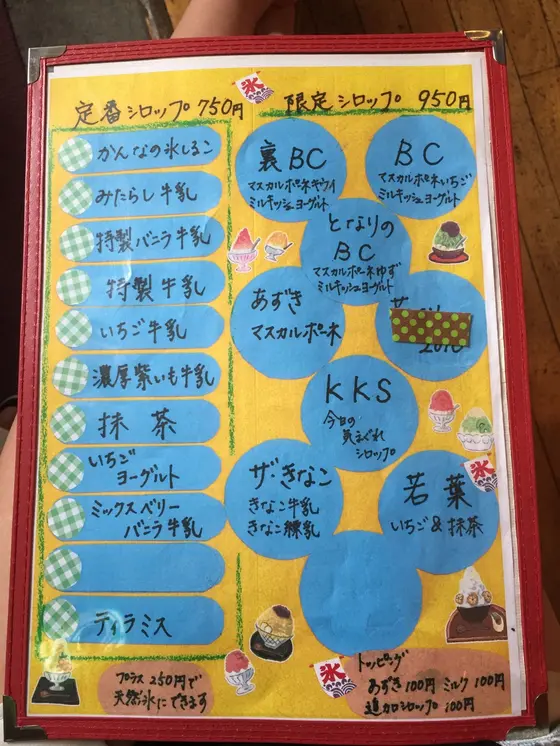 氷
定番シロップ 750円
かんなの氷しるこ
みたらし牛乳
特製バニラ牛乳
特製牛乳
いちご牛乳
濃厚紫いも牛乳
抹茶
いちご
ヨーグルト
ミックスベリー
バニラ牛乳
ティラミス
プラス250円で
天然氷にできます
限定シロップ 950円
裏BC
マスカルポーネキウイ
ミルキッシュヨーグルト
BC
マスカルポーネいちご
ミルキッシュヨーグルト
となりの
BC
マスカルポーネゆず
ミルキッシュヨーグルト
あずき
マスカルポーネ
KKS
今日の
気まぐれ
シロップ
ザ・きなこ
きなこ牛乳
きなこ練乳
氷
若葉
いちご&抹茶
氷
トッピング
あずき100円 ミルク100円
追加シロップ 100円